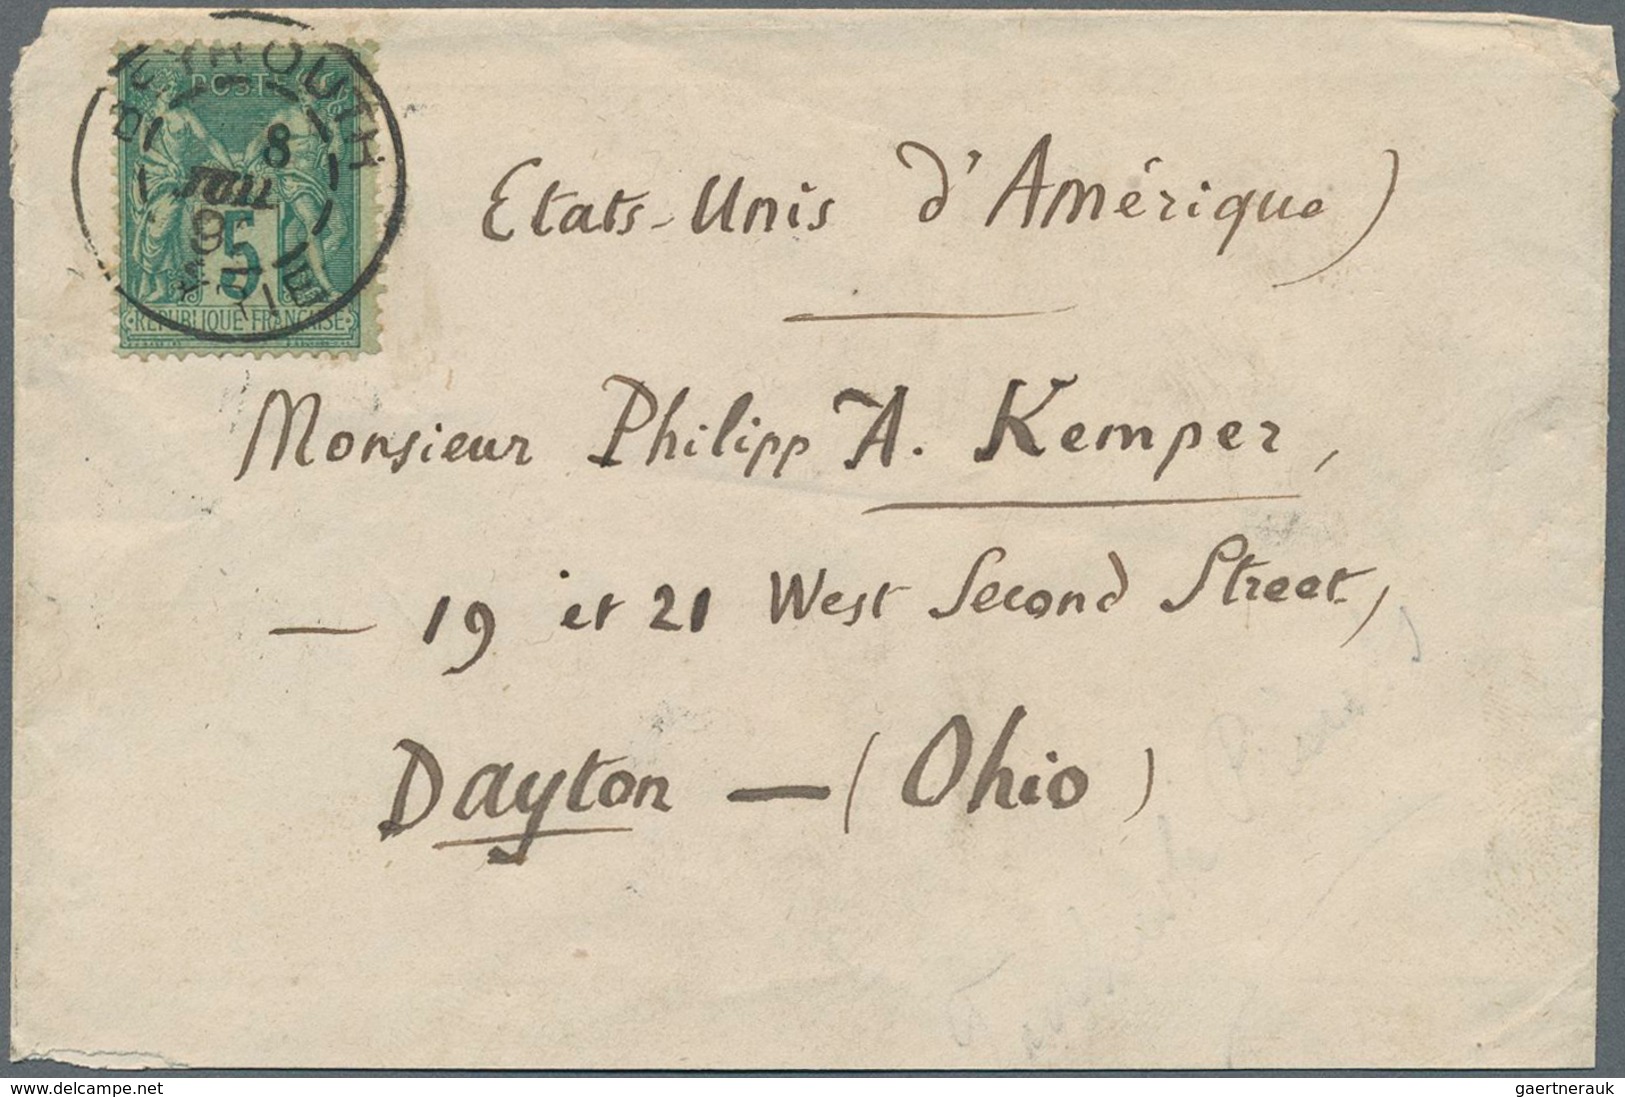 BEYROUTH
POSTE
8
5
SYRIE
REPUBLIQUE FRANÇAISE
Etats-Unis d'Amérique)
Monsieur Philipp A. Kemper,
— 19 et 21 West Second Street,
Dayton — (Ohio)
www.delcampe.net
gaertnerauk